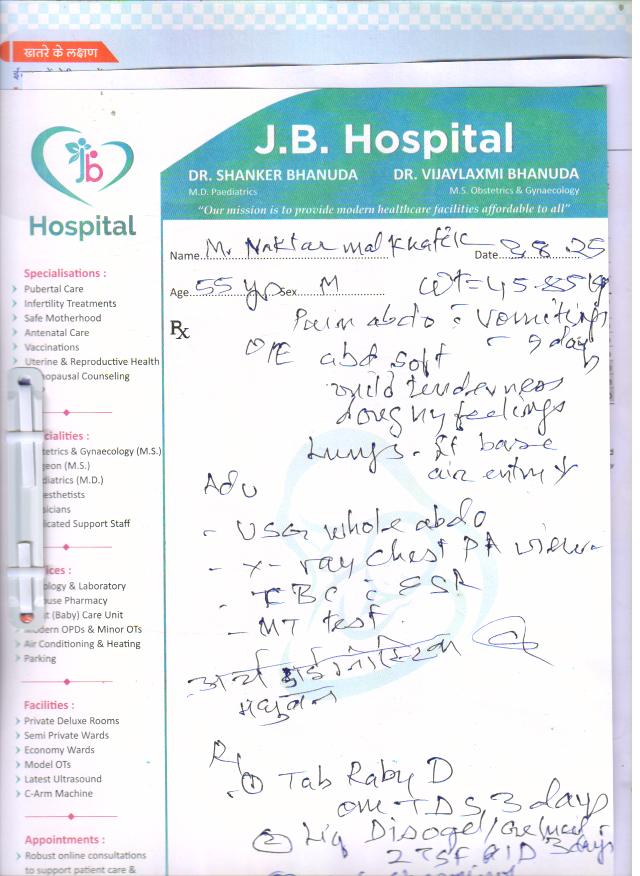 खतरे के लक्षण
jb
Hospital
J.B. Hospital
DR. SHANKER BHANUDA DR. VIJAYLAXMI BHANUDA
M.D. Paediatrics M.S. Obstetrics & Gynaecology
"Our mission is to provide modern healthcare facilities affordable to all"
Name Mr Date 8.8.25
Age 55 yrs Sex M Wt=45.85 kg
Rx
Pain abdo c̄ vomitings
9 days
O/E abd soft
mild tenderness
doughy feelings
Lungs - Rt base
air entry ↓
Adv
- USG whole abdo
- X-ray chest PA view
- CBC c̄ ESR
- MT test
Rx
① Tab Raby D
one TDS 3 days
② Liq Disogel/
2 TSF QID 3 days
Specialisations :
Pubertal Care
Infertility Treatments
Safe Motherhood
Antenatal Care
Vaccinations
Uterine & Reproductive Health
nopausal Counseling
cialities :
tetrics & Gynaecology (M.S.)
geon (M.S.)
diatrics (M.D.)
esthetists
sicians
icated Support Staff
ices :
ology & Laboratory
use Pharmacy
(Baby) Care Unit
Modern OPDs & Minor OTs
Air Conditioning & Heating
Parking
Facilities :
Private Deluxe Rooms
Semi Private Wards
Economy Wards
Model OTs
Latest Ultrasound
C-Arm Machine
Appointments :
Robust online consultations
to support patient care &